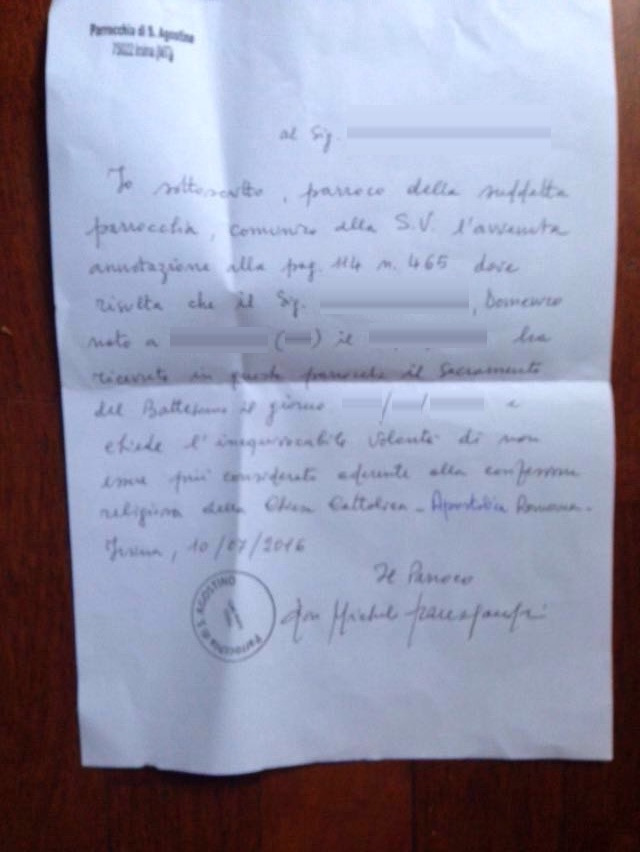 Parrocchia di S. Agostino
75022 Irsina (MT)
al Sig.
Io sottoscritto, parroco della suddetta
parrocchia, comunico alla S.V. l'avvenuta
annotazione alla pag. 114 n. 465 dove
risulta che il Sig. , Domenico
nato a ( ) il ha
ricevuto in questa parrocchia il Sacramento
del Battesimo il giorno / / e
chiede l'inequivocabile volontà di non
essere più considerato aderente alla confessione
religiosa della Chiesa Cattolica - Apostolica Romana.
Irsina, 10/07/2016
Il Parroco
don Michele
Parrocchia di S. AGOSTINO